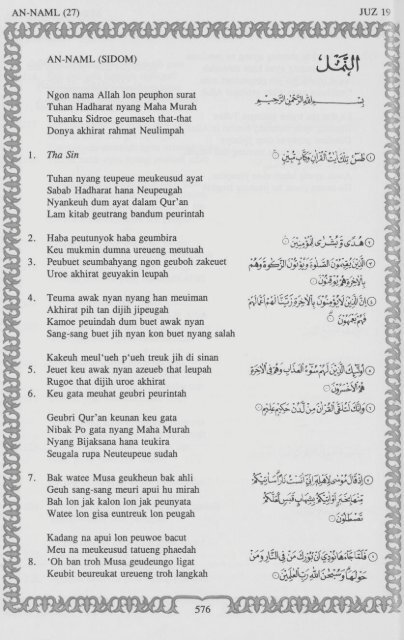 AN-NAML (27)
JUZ 19
AN-NAML (SIDOM)
النَّمْل
Ngon nama Allah lon peuphon surat
Tuhan Hadharat nyang Maha Murah
Tuhanku Sidroe geumaseh that-that
Donya akhirat rahmat Neulimpah
بِسْمِ اللهِ الرَّحْمٰنِ الرَّحِيْمِ
1. Tha Sin
طٰسۤ تِلْكَ اٰيٰتُ الْقُرْاٰنِ وَكِتَابٍ مُّبِيْنٍ ۝ ١
Tuhan nyang teupeue meukeusud ayat
Sabab Hadharat hana Neupeugah
Nyankeuh dum ayat dalam Qur'an
Lam kitab geutrang bandum peurintah
2. Haba peutunyok haba geumbira
Keu mukmin dumna ureueng meutuah
٢ هُدًى وَّبُشْرٰى لِلْمُؤْمِنِيْنَ ۝
3. Peubuet seumbahyang ngon geuboh zakeuet
Uroe akhirat geuyakin leupah
٣ الَّذِيْنَ يُقِيْمُوْنَ الصَّلٰوةَ وَيُؤْتُوْنَ الزَّكٰوةَ وَهُمْ
بِالْاٰخِرَةِ هُمْ يُوْقِنُوْنَ ۝
4. Teuma awak nyan nyang han meuiman
Akhirat pih tan dijih jipeugah
Kamoe peuindah dum buet awak nyan
Sang-sang buet jih nyan kon buet nyang salah
٤ اِنَّ الَّذِيْنَ لَا يُؤْمِنُوْنَ بِالْاٰخِرَةِ زَيَّنَّا لَهُمْ اَعْمَالَهُمْ
فَهُمْ يَعْمَهُوْنَ ۝
Kakeuh meul'ueh p'ueh treuk jih di sinan
5. Jeuet keu awak nyan azeueb that leupah
Rugoe that dijih uroe akhirat
٥ اُولٰۤىِٕكَ الَّذِيْنَ لَهُمْ سُوْۤءُ الْعَذَابِ وَهُمْ فِى الْاٰخِرَةِ
هُمُ الْاَخْسَرُوْنَ ۝
6. Keu gata meuhat geubri peurintah
٦ وَاِنَّكَ لَتُلَقَّى الْقُرْاٰنَ مِنْ لَّدُنْ حَكِيْمٍ عَلِيْمٍ ۝
Geubri Qur'an keunan keu gata
Nibak Po gata nyang Maha Murah
Nyang Bijaksana hana teukira
Seugala rupa Neuteupeue sudah
7. Bak watee Musa geukheun bak ahli
Geuh sang-sang meuri apui hu mirah
Bah lon jak kalon lon jak peunyata
Watee lon gisa euntreuk lon peugah
٧ اِذْ قَالَ مُوْسٰى لِاَهْلِهٖۤ اِنِّيْۤ اٰنَسْتُ نَارًا سَاٰتِيْكُمْ
مِّنْهَا بِخَبَرٍ اَوْ اٰتِيْكُمْ بِشِهَابٍ قَبَسٍ لَّعَلَّكُمْ
تَصْطَلُوْنَ ۝
Kadang na apui lon peuwoe bacut
Meu na meukeusud tatueng phaedah
8. 'Oh ban troh Musa geudeungo ligat
Keubit beureukat ureueng troh langkah
٨ فَلَمَّا جَاۤءَهَا نُوْدِيَ اَنْۢ بُوْرِكَ مَنْ فِى النَّارِ وَمَنْ
حَوْلَهَا وَسُبْحٰنَ اللهِ رَبِّ الْعٰلَمِيْنَ ۝
576